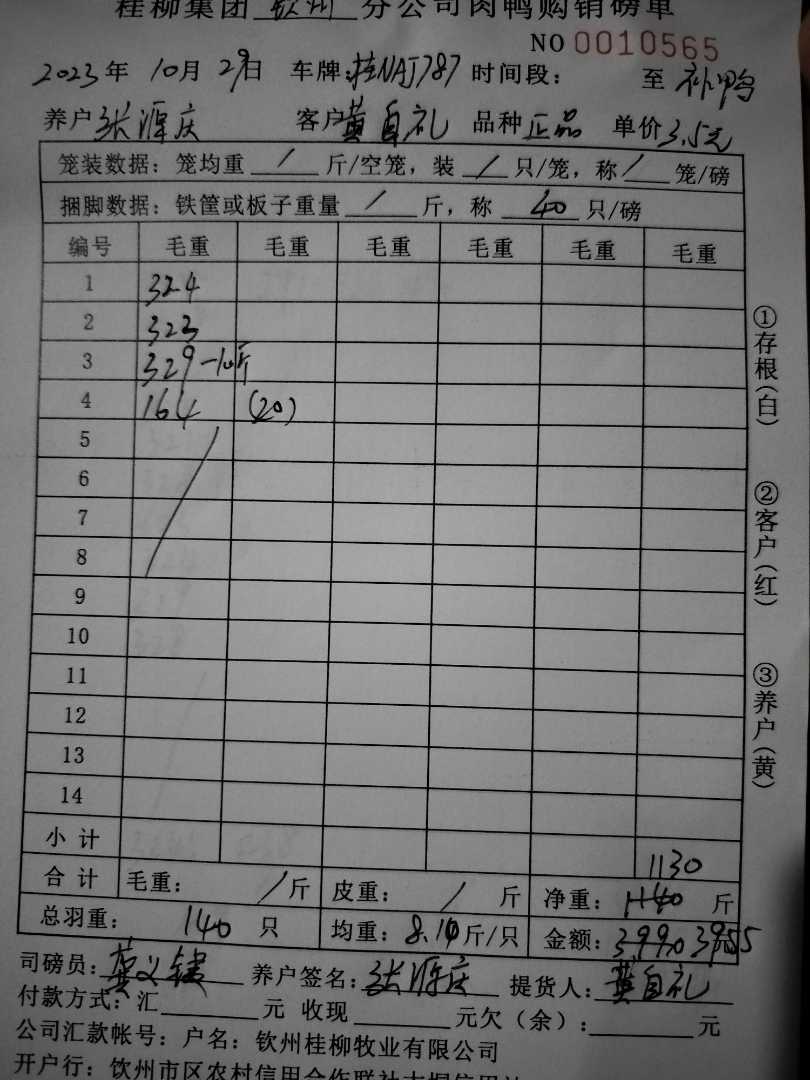 桂柳集团 钦州 分公司肉鸭购销磅单
NO 0010565
2023年 10月 29日 车牌:桂NAJ787 时间段: 至 补鸭
养户 张源庆 客户 黄自礼 品种 正品 单价 3.5元
笼装数据: 笼均重 / 斤/空笼, 装 / 只/笼, 称 / 笼/磅
捆脚数据: 铁筐或板子重量 / 斤, 称 40 只/磅
编号 毛重 毛重 毛重 毛重 毛重 毛重
1 324
2 323
3 329-10斤
4 164 (20)
5
6
7
8
9
10
11
12
13
14
小计
1130
合计 毛重: / 斤 皮重: / 斤 净重: 1140 斤
总羽重: 140 只 均重: 8.10斤/只 金额: 3990 3955
司磅员: 黄义键 养户签名: 张源庆 提货人: 黄自礼
付款方式: 汇 元 收现 元欠(余): 元
公司汇款帐号: 户名: 钦州桂柳牧业有限公司
开户行: 钦州市区农村信用合作联社
①存根(白)
②客户(红)
③养户(黄)